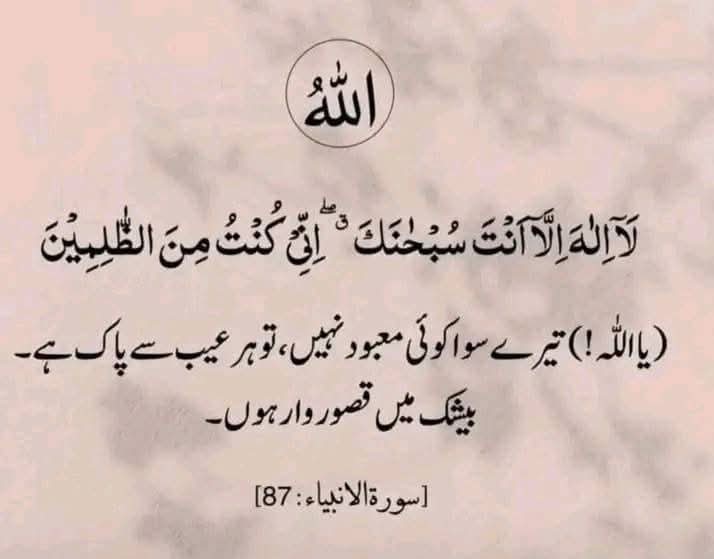 اللهُ
لَآ اِلٰهَ اِلَّآ اَنْتَ سُبْحٰنَكَ ۖق اِنِّيْ كُنْتُ مِنَ الظّٰلِمِيْنَ
(یا اللہ!) تیرے سوا کوئی معبود نہیں، تو ہر عیب سے پاک ہے۔
بیشک میں قصوروار ہوں۔
[سورۃ الانبیاء: 87]